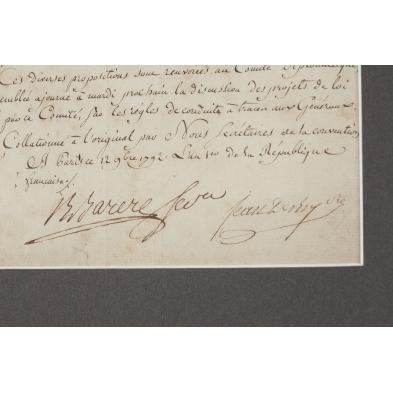 Ces diverses propositions sont renvoyées au Comité Diplomatique
emblée ajourne à mardi prochain la discussion des projets de loi
par ce Comité, sur les règles de conduite à tracer aux Généraux.
Collationné à l'original par Nous Secrétaires de la convention
A Paris ce 12 9bre 1792. L'an 1er de la République
française.
B. Barere
Jean Debry